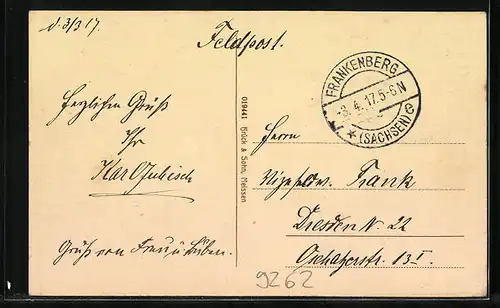 d. 3/3 17.
Feldpost.
FRANKENBERG
-3.4.17.5-6N
* (SACHSEN) c
herzlichen Gruß
Ihr
Karl
Gruß von Frau u.
019441 Brück & Sohn, Meissen
Herrn
Vizefeldw. Frank
Dresden N. 22
Oschatzerstr. 13 I.
9262